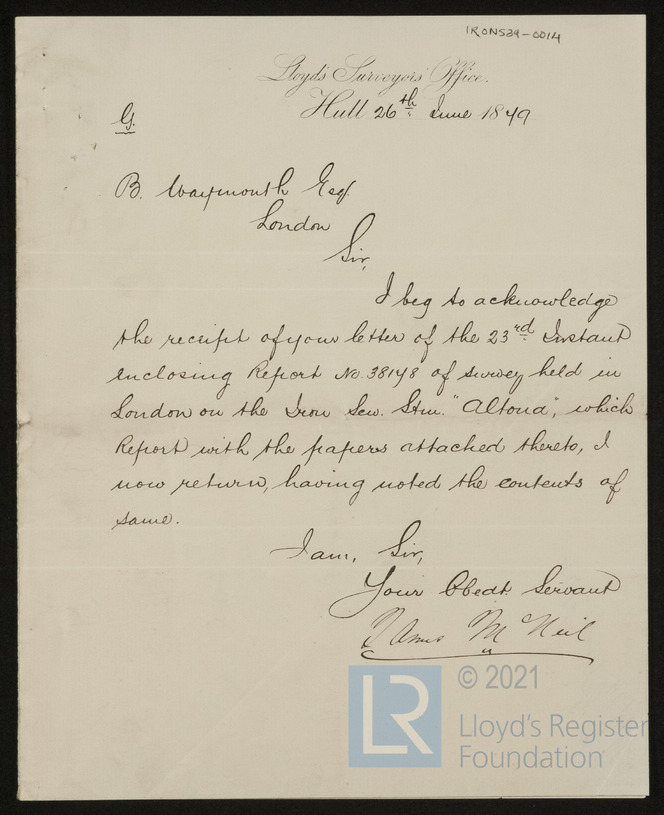 IRON539-0014
Lloyd's Surveyors' Office.
Hull 26th June 1879
G.
B. Waymouth Esq.
London
Sir,
I beg to acknowledge
the receipt of your letter of the 23rd Instant
enclosing Report No. 38148 of survey held in
London on the Iron Scw. Stm. "Altona", which
Report with the papers attached thereto, I
now return, having noted the contents of
same.
I am, Sir,
Your Obedt. Servant
James McNeil
LR
© 2021
Lloyd's Register
Foundation